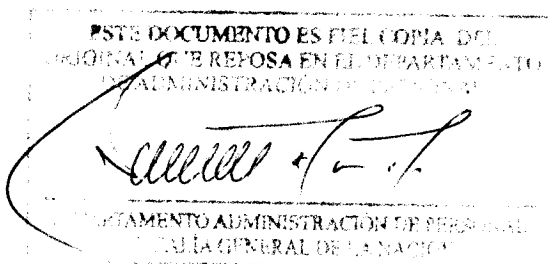 ESTE DOCUMENTO ES FIEL COPIA DEL
ORIGINAL QUE REPOSA EN EL DEPARTAMENTO
DE ADMINISTRACIÓN DE PERSONAL
DEPARTAMENTO ADMINISTRACIÓN DE PERSONAL
FISCALÍA GENERAL DE LA NACIÓN